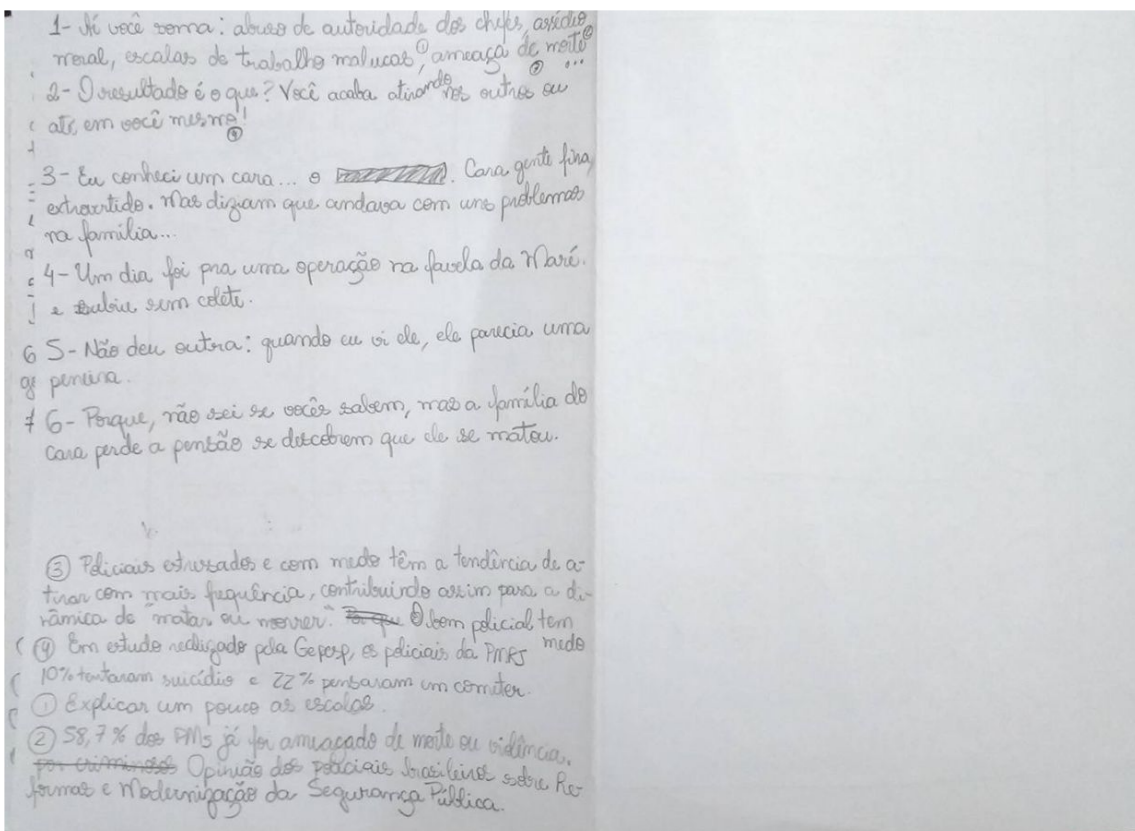 1- Aí você soma: abuso de autoridade dos chefes, assédio
moral, escalas de trabalho malucas①, ameaça de morte②...
2- O resultado é o que? Você acaba atirando③ nos outros ou
até em você mesmo④!
3- Eu conheci um cara... o . Cara gente fina,
extrovertido. Mas diziam que andava com uns problemas
na família...
4- Um dia foi pra uma operação na favela da Maré.
e subiu sem colete.
5- Não deu outra: quando eu vi ele, ele parecia uma
peneira.
6- Porque, não sei se vocês sabem, mas a família do
cara perde a pensão se descobrem que ele se matou.
③ Policiais estressados e com medo têm a tendência de a-
tirar com mais frequência, contribuindo assim para a di-
nâmica de "matar ou morrer." O bom policial tem
medo
④ Em estudo realizado pela Gepesp, os policiais da PMRJ
10% tentaram suicídio e 22% pensaram em cometer.
① Explicar um pouco as escalas.
② 58,7% dos PMs já foi ameaçado de morte ou violência.
por criminosos Opinião dos policiais brasileiros sobre Re-
formas e Modernização da Segurança Pública.